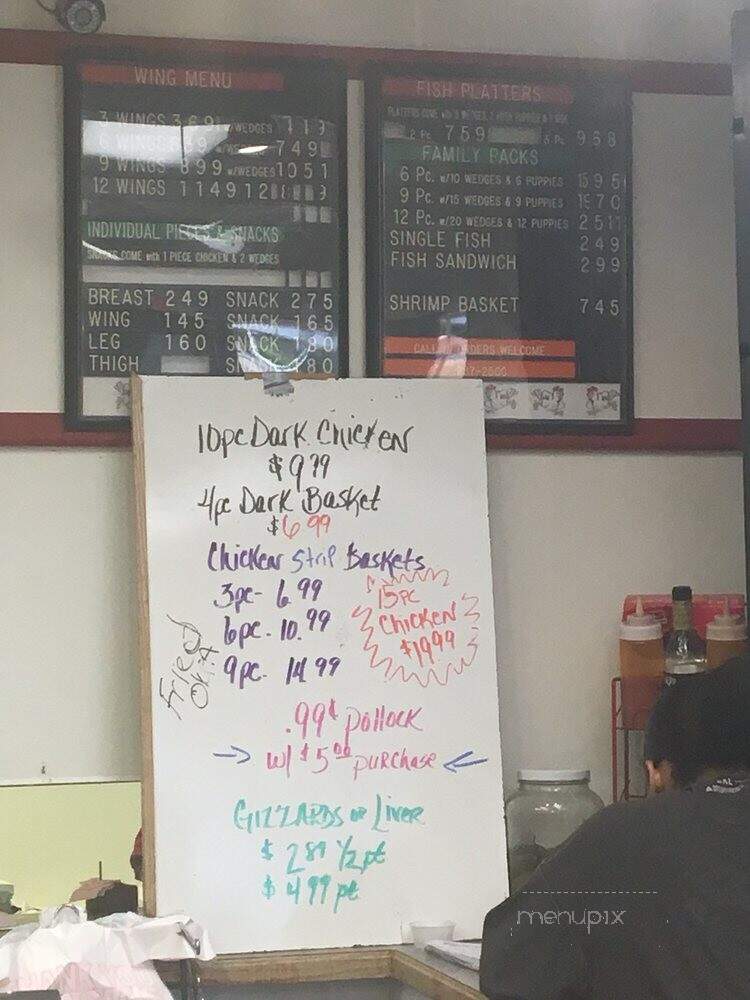 WING MENU
3 WINGS 3 6 9 W/WEDGES
6 WINGS 7 4 9
9 WINGS 8 9 9 W/WEDGES 1 0 5 1
12 WINGS 1 1 4 9
INDIVIDUAL PIECES & SNACKS
SNACKS COME with 1 PIECE CHICKEN & 2 WEDGES
BREAST 2 4 9 SNACK 2 7 5
WING 1 4 5 SNACK 1 6 5
LEG 1 6 0 SNACK
THIGH
FISH PLATTERS
2 Pc 7 5 9 9 6 8
FAMILY PACKS
6 Pc. w/10 WEDGES & 6 PUPPIES 1 5 9 5
9 Pc. w/15 WEDGES & 9 PUPPIES 1 9 7 0
12 Pc. w/20 WEDGES & 12 PUPPIES 2 5 1 1
SINGLE FISH 2 4 9
FISH SANDWICH 2 9 9
SHRIMP BASKET 7 4 5
WELCOME
10pc Dark Chicken
$9.99
4pc Dark Basket
$6.99
Chicken Strip Baskets
3pc- 6.99
6pc. 10.99
9pc. 14.99
15pc
Chicken
$19.99
Fried
Okra
.99¢ pollock
w/ $5.00 purchase
GIZZARDS or Liver
$ 2.89 1/2 pt
$ 4.99 pt
menupix